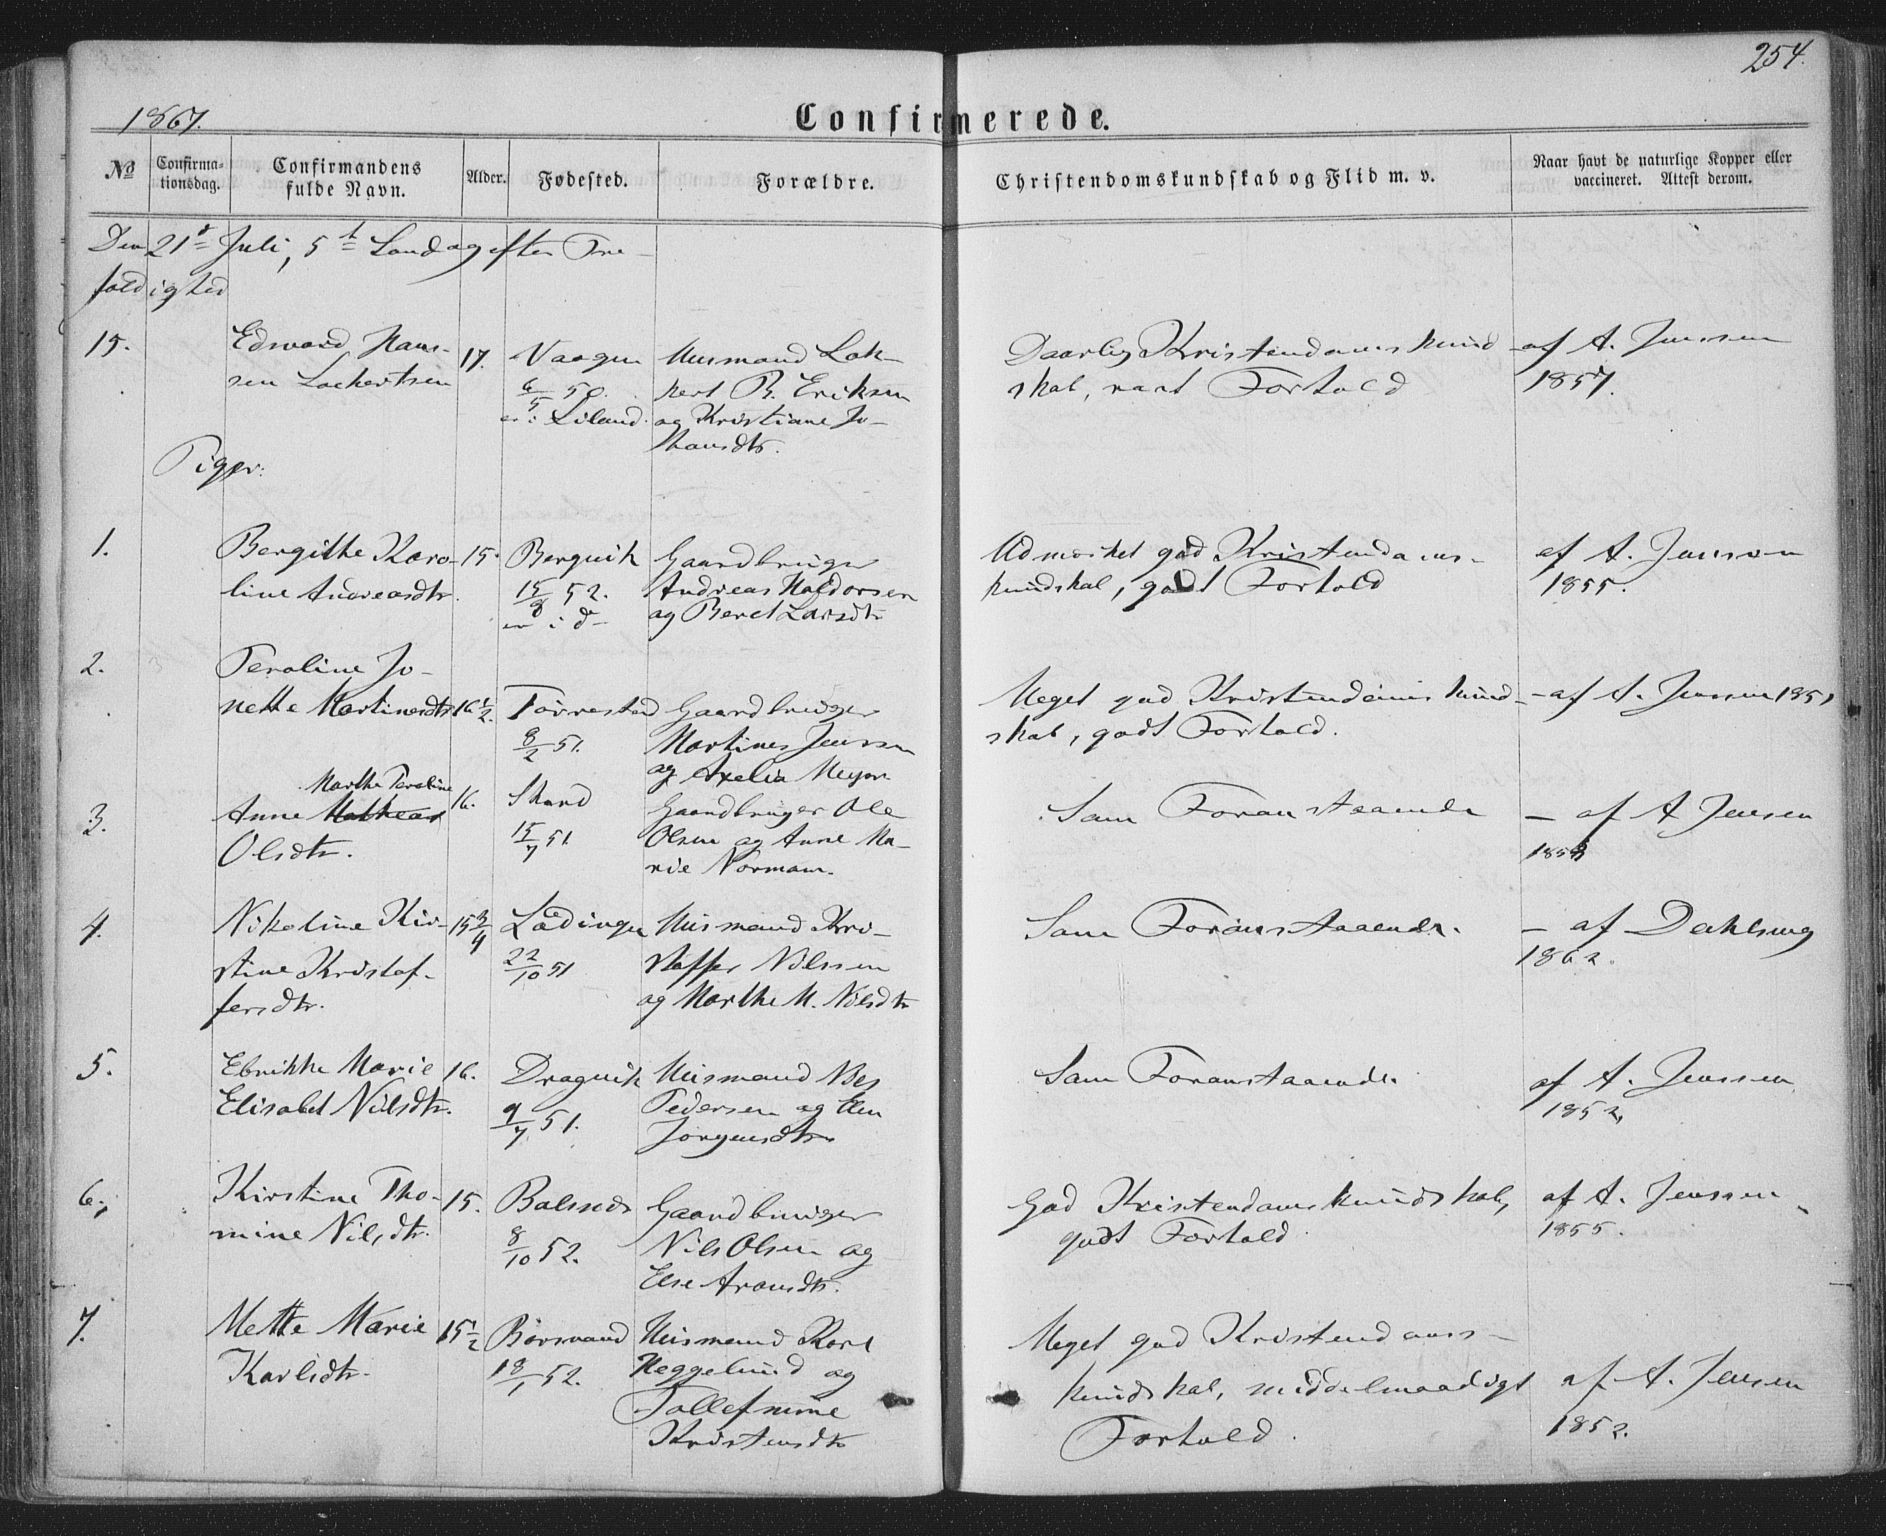 254.
1867.
Confirmerede.
No
Confirma-
tionsdag.
Confirmandens
fulde Navn.
Alder.
Fødested.
Forældre.
Christendomskundskab og Flid m. v.
Naar havt de naturlige Kopper eller
vaccineret. Attest derom.
Den 21de Juli, 5te Søndag efter Tre-
foldighed
15.
Edward Hans-
sen Lockertsen
17.
Vaagen
6/5 50.
er i Liland.
Husmand Lok-
kert B. Eriksen
og Kristiane Jo-
hansdtr.
Daarlig Kristendomskund-
skab, vant Forhold
af A. Jenssen
1857.
Piger:
1.
Bergithe Karo-
line Andreasdtr.
15.
Bergvik
15/8 52.
er i do
Gaardbruger
Andreas Haldorsen
og Beret Larsdtr
Udmærket god Kristendoms-
kundskab, godt Forhold
af A. Jenssen
1855.
2.
Peroline Jo-
nette Martinesdtr
16 1/2.
Taarrestad
8/2 51.
Gaardbruger
Martines Jenssen
og Axelia Meyer
Meget god Kristendomskund-
skab, godt Forhold.
- af A. Jenssen 185
3.
Marthe Peroline
Anne Mathea
Olsdtr.
16.
Skard
15/7 51
Gaardbruger Ole
Olsen og Anne Ma-
rie Normann.
Som Foranstaaende
- af A Jensen
185
4.
Nikoline Kir-
stine Kristof-
fersdtr.
15 3/4
Lødingen
22/10 51
Husmand Kri-
stoffer Nilssen
og Marthe M. Nilsdtr
Som Foranstaaende.
- af Dahlsing
1862.
5.
Ebrikke Marie
Elisabet Nilsdtr.
16.
Dragvik
9/7 51.
Husmand Nils
Pedersen og Elen
Jørgensdtr
Som Foranstaaende.
af A. Jenssen
1852,
6.
Kirstine Tho-
mine Nilsdtr.
15.
Balsnes
8/10 52.
Gaardbruger
Nils Olsen og
Else Aronsdtr.
God Kristendomskundskab,
godt Forhold
af A. Jenssen
1855.
7.
Mette Marie
Karlsdtr.
15 1/2
Børsvand
18/1 52.
Husmand Karl
Heggelund og
Tollefmine
Kristensdtr
Meget god Kristendoms-
kundskab, middelmaadigt
Forhold.
af A. Jensen
1852.